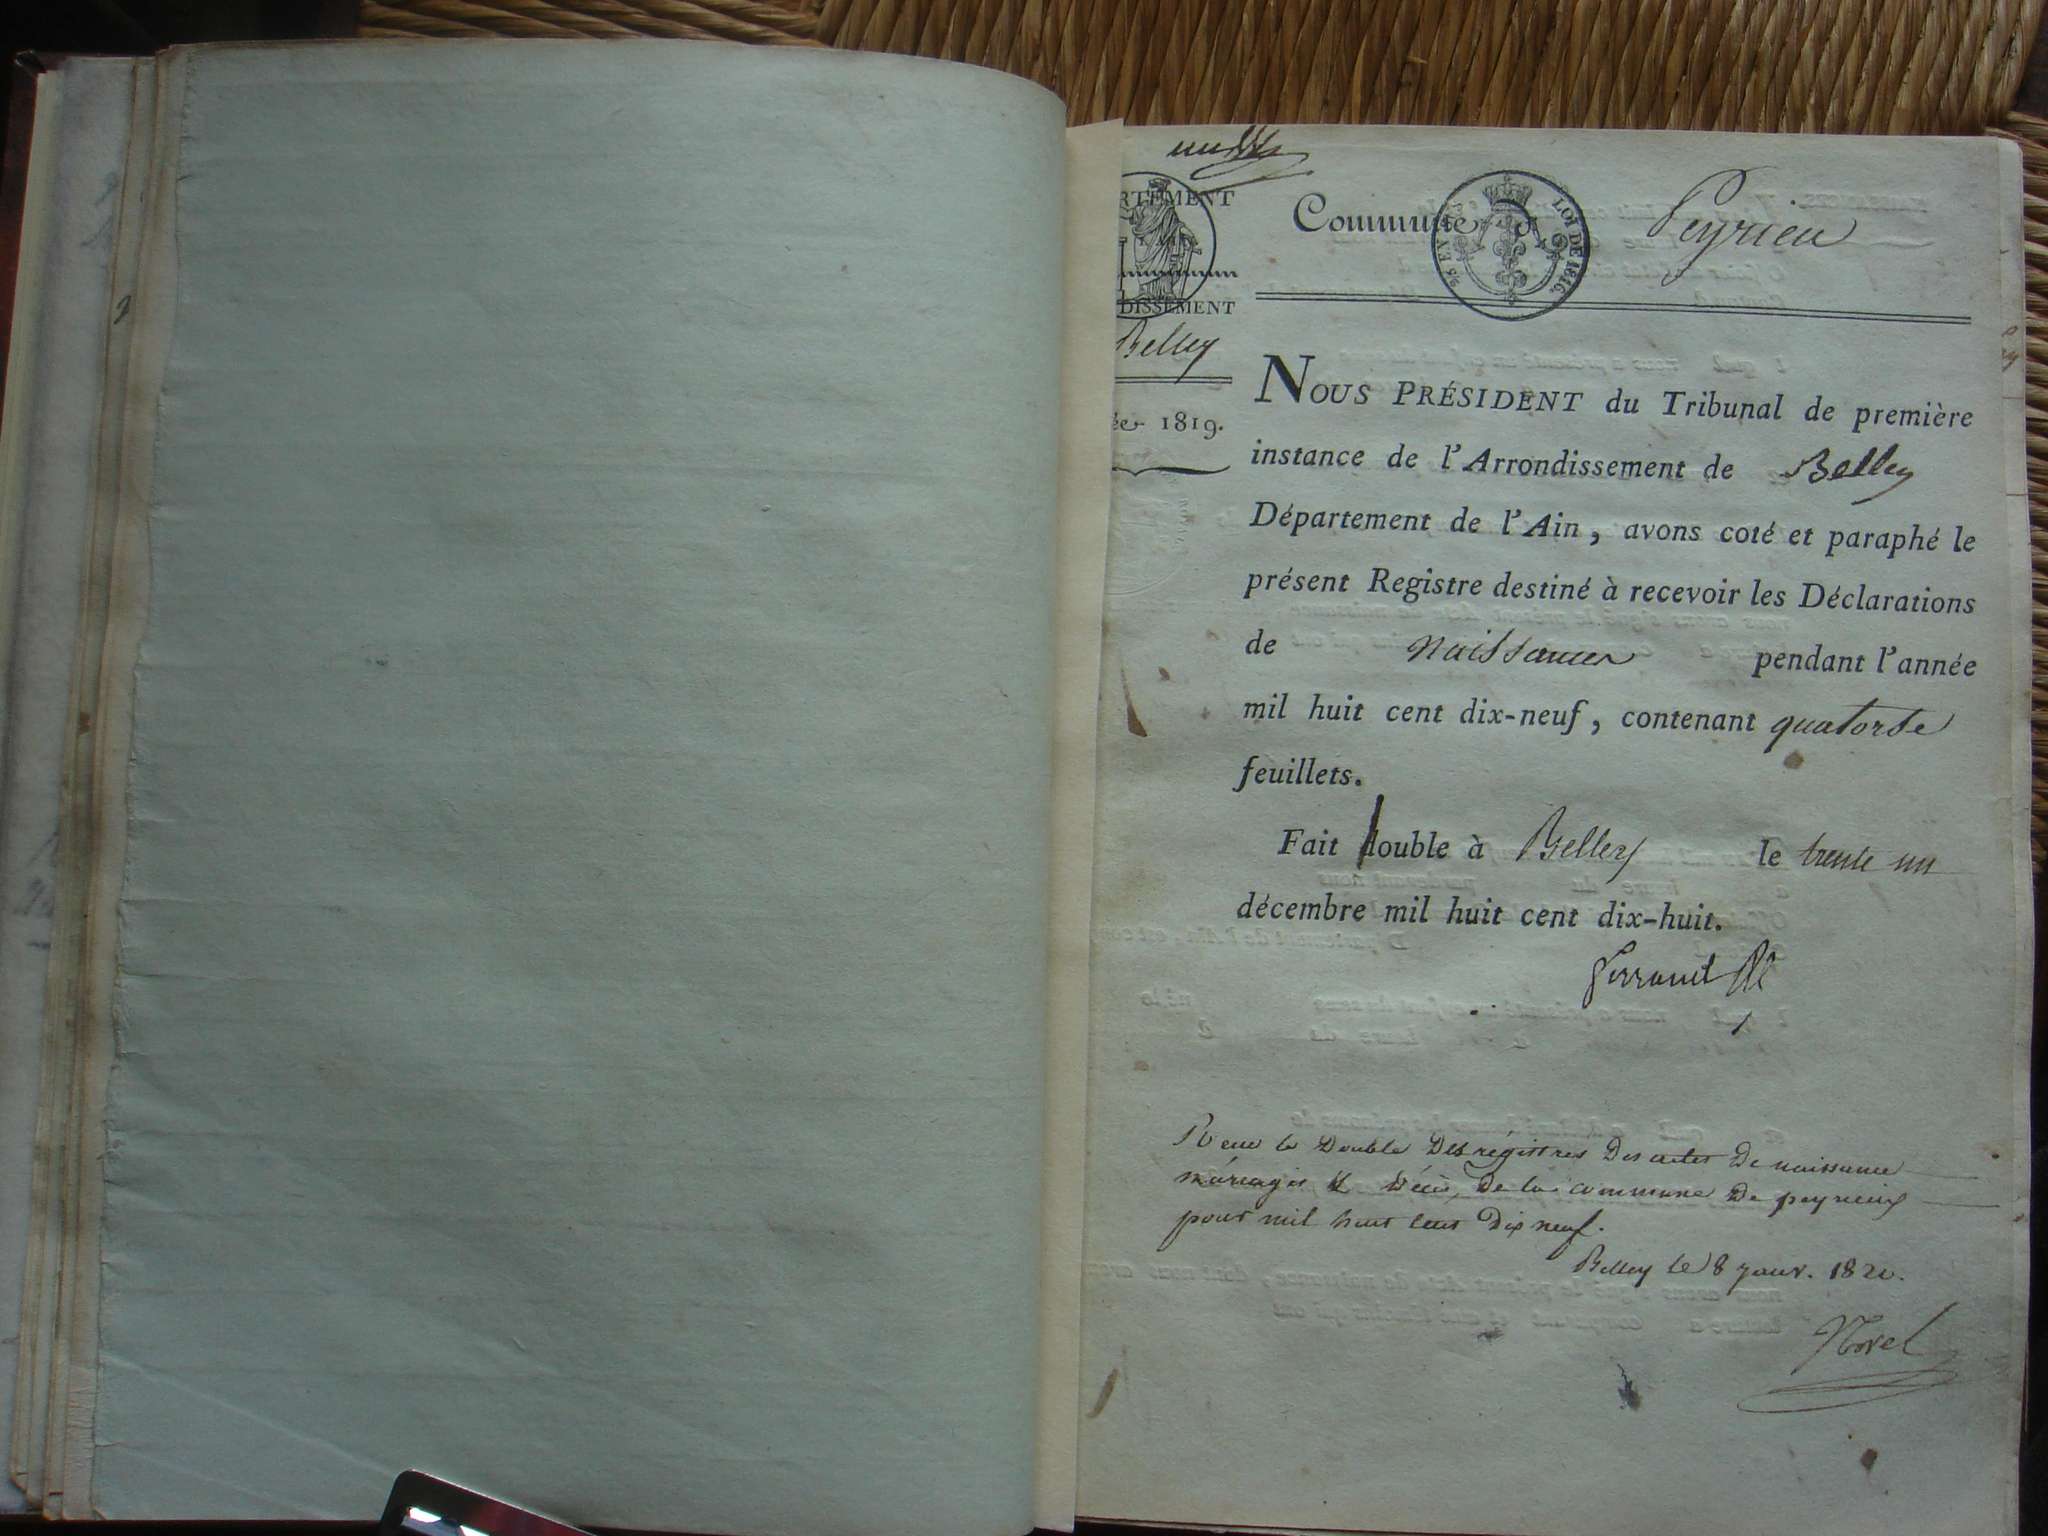 RTEMENT
DISSEMENT
Belley
ée 1819.
Commune de Peyrieu
LOI DE 1816.
NOUS PRÉSIDENT du Tribunal de première
instance de l'Arrondissement de Belley
Département de l'Ain, avons coté et paraphé le
présent Registre destiné à recevoir les Déclarations
de naissances pendant l'année
mil huit cent dix-neuf, contenant quatorse
feuillets.
Fait double à Belley le trente un
décembre mil huit cent dix-huit.
Recu le Double Des régistres Des actes De naissance
máriages et Décès, De la commune De peyrieux
pour mil huit cent Dix neuf.
Belley le 8 janv. 1820.
Morel